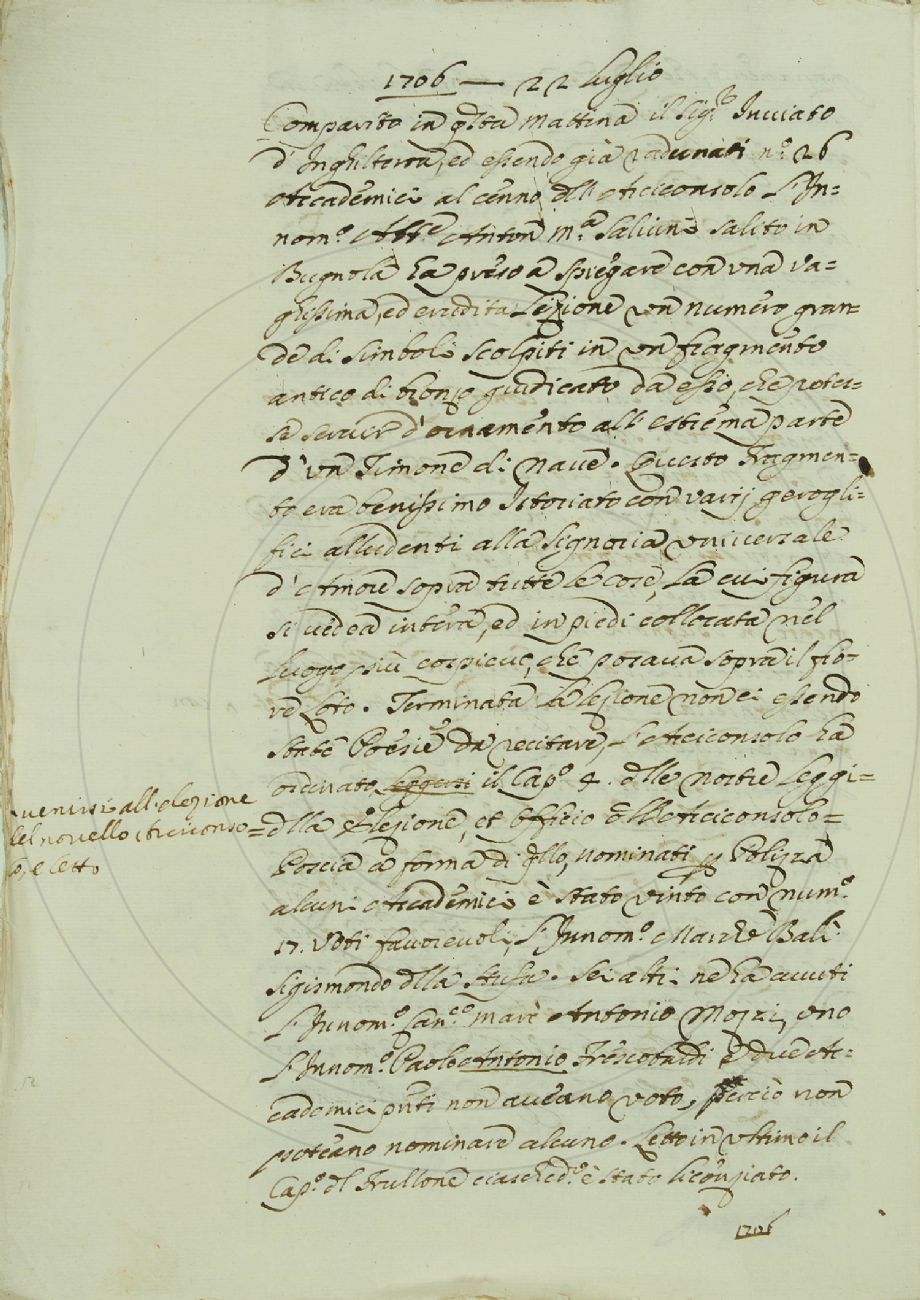 1706 — 22 Luglio
Comparito in q̃sta mattina il Sig.r Inviato
d'Inghilterra, ed essendo già radunati n.o 26
Accademici al cenno dell Arciconsolo L'In=
nom.o Abb.e Anton m.a Salvini salito in
Bugnola ha preso a spiegare con una va=
ghissima, ed erudita Lezione un numero gran=
de di simboli scolpiti in un fragmento
antico di bronzo giudicato da esso, che potes=
se servir d'ornamento all' estrema parte
d'un Timone di nave. Questo Fragmen=
to era benissimo Istoriato con varij gerogli=
fici alludenti alla Signoria universale
d'Amore sopra tutte le cose, la cui figura
si vedea intera, ed in piedi collocata nel
luogo più cospicuo, che posava sopra il fio=
re Loto. Terminata la lezione non ci essendo
state Poesie da recitare, L'Arciconsolo ha
ordinato leggersi il Cap.o 4. delle nostre Leggi=
venirsi all'elezione
del novello Arciconso=
lo, e letto
della Elezione, et Offizio dell'Arciconsolo=
Poscia a forma di q̃llo, nominati p Polizza
alcuni Accademici è stato vinto con num.o
17. Voti favorevoli, L'Innom.o March.e Balì
Sigismondo della Stufa. Sei altri ne ha avuti
L'Innom.o Can.co Marc Antonio Mozzi, uno
L'Innom.o Paolo Antonio Frescobaldi e due Ac=
cademici pñti non aveano voto, perciò non
poteano nominare alcuno. Letto in ultimo il
Cap.o del Frullone ciasched.o è stato licenziato.
1706